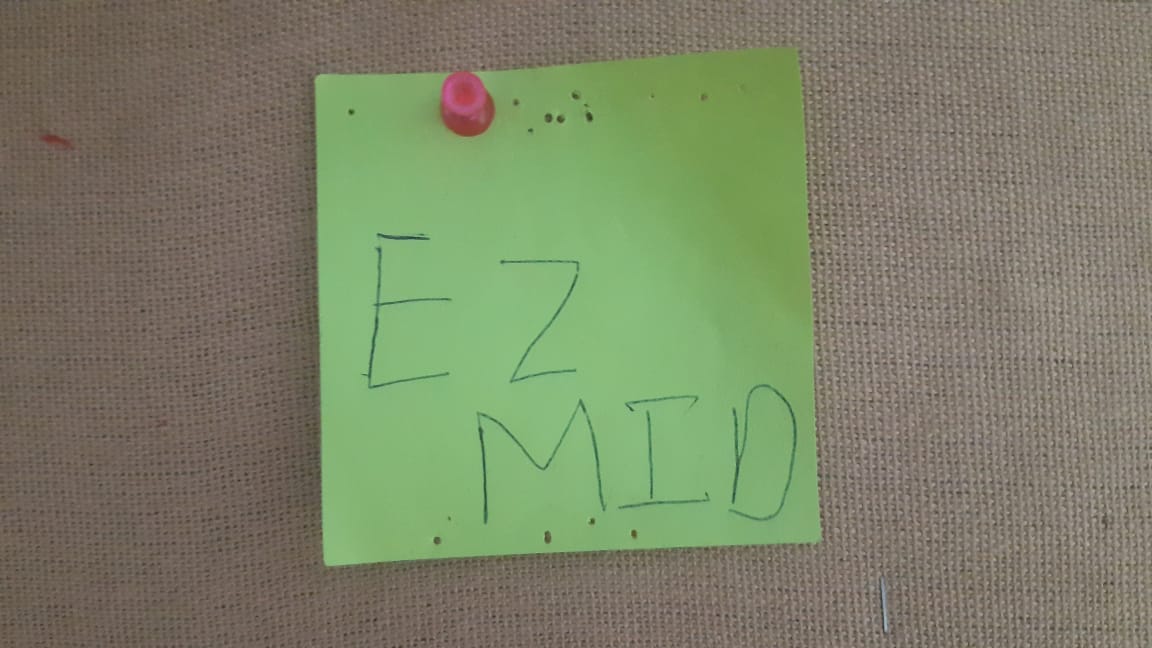 EZ
MID